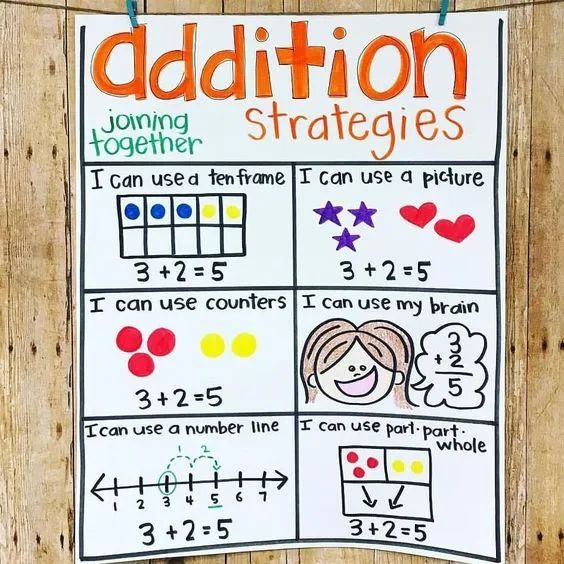 addition
joining
together
strategies
I can use a ten frame
3 + 2 = 5
I can use a picture
3 + 2 = 5
I can use counters
3 + 2 = 5
I can use my brain
3
+ 2
5
I can use a number line
1 2
1 2 3 4 5 6 7
3 + 2 = 5
I can use part-part-
whole
3 + 2 = 5